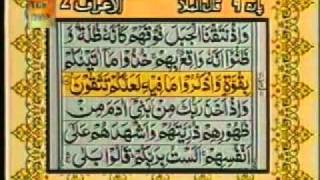 پارہ ۹ قال الملا
الاعراف ۷
وَاِذْ نَتَقْنَا الْجَبَلَ فَوْقَهُمْ كَاَنَّهٗ ظُلَّةٌ وَّ
ظَنُّوْۤا اَنَّهٗ وَاقِعٌۢ بِهِمْ خُذُوْا مَاۤ اٰتَيْنٰكُمْ
بِقُوَّةٍ وَّاذْكُرُوْا مَا فِيْهِ لَعَلَّكُمْ تَتَّقُوْنَ وَاِذْ
اَخَذَ رَبُّكَ مِنْۢ بَنِيْۤ اٰدَمَ مِنْ
ظُهُوْرِهِمْ ذُرِّيَّتَهُمْ وَاَشْهَدَهُمْ عَلٰۤى
اَنْفُسِهِمْ اَلَسْتُ بِرَبِّكُمْ قَالُوْا بَلٰى